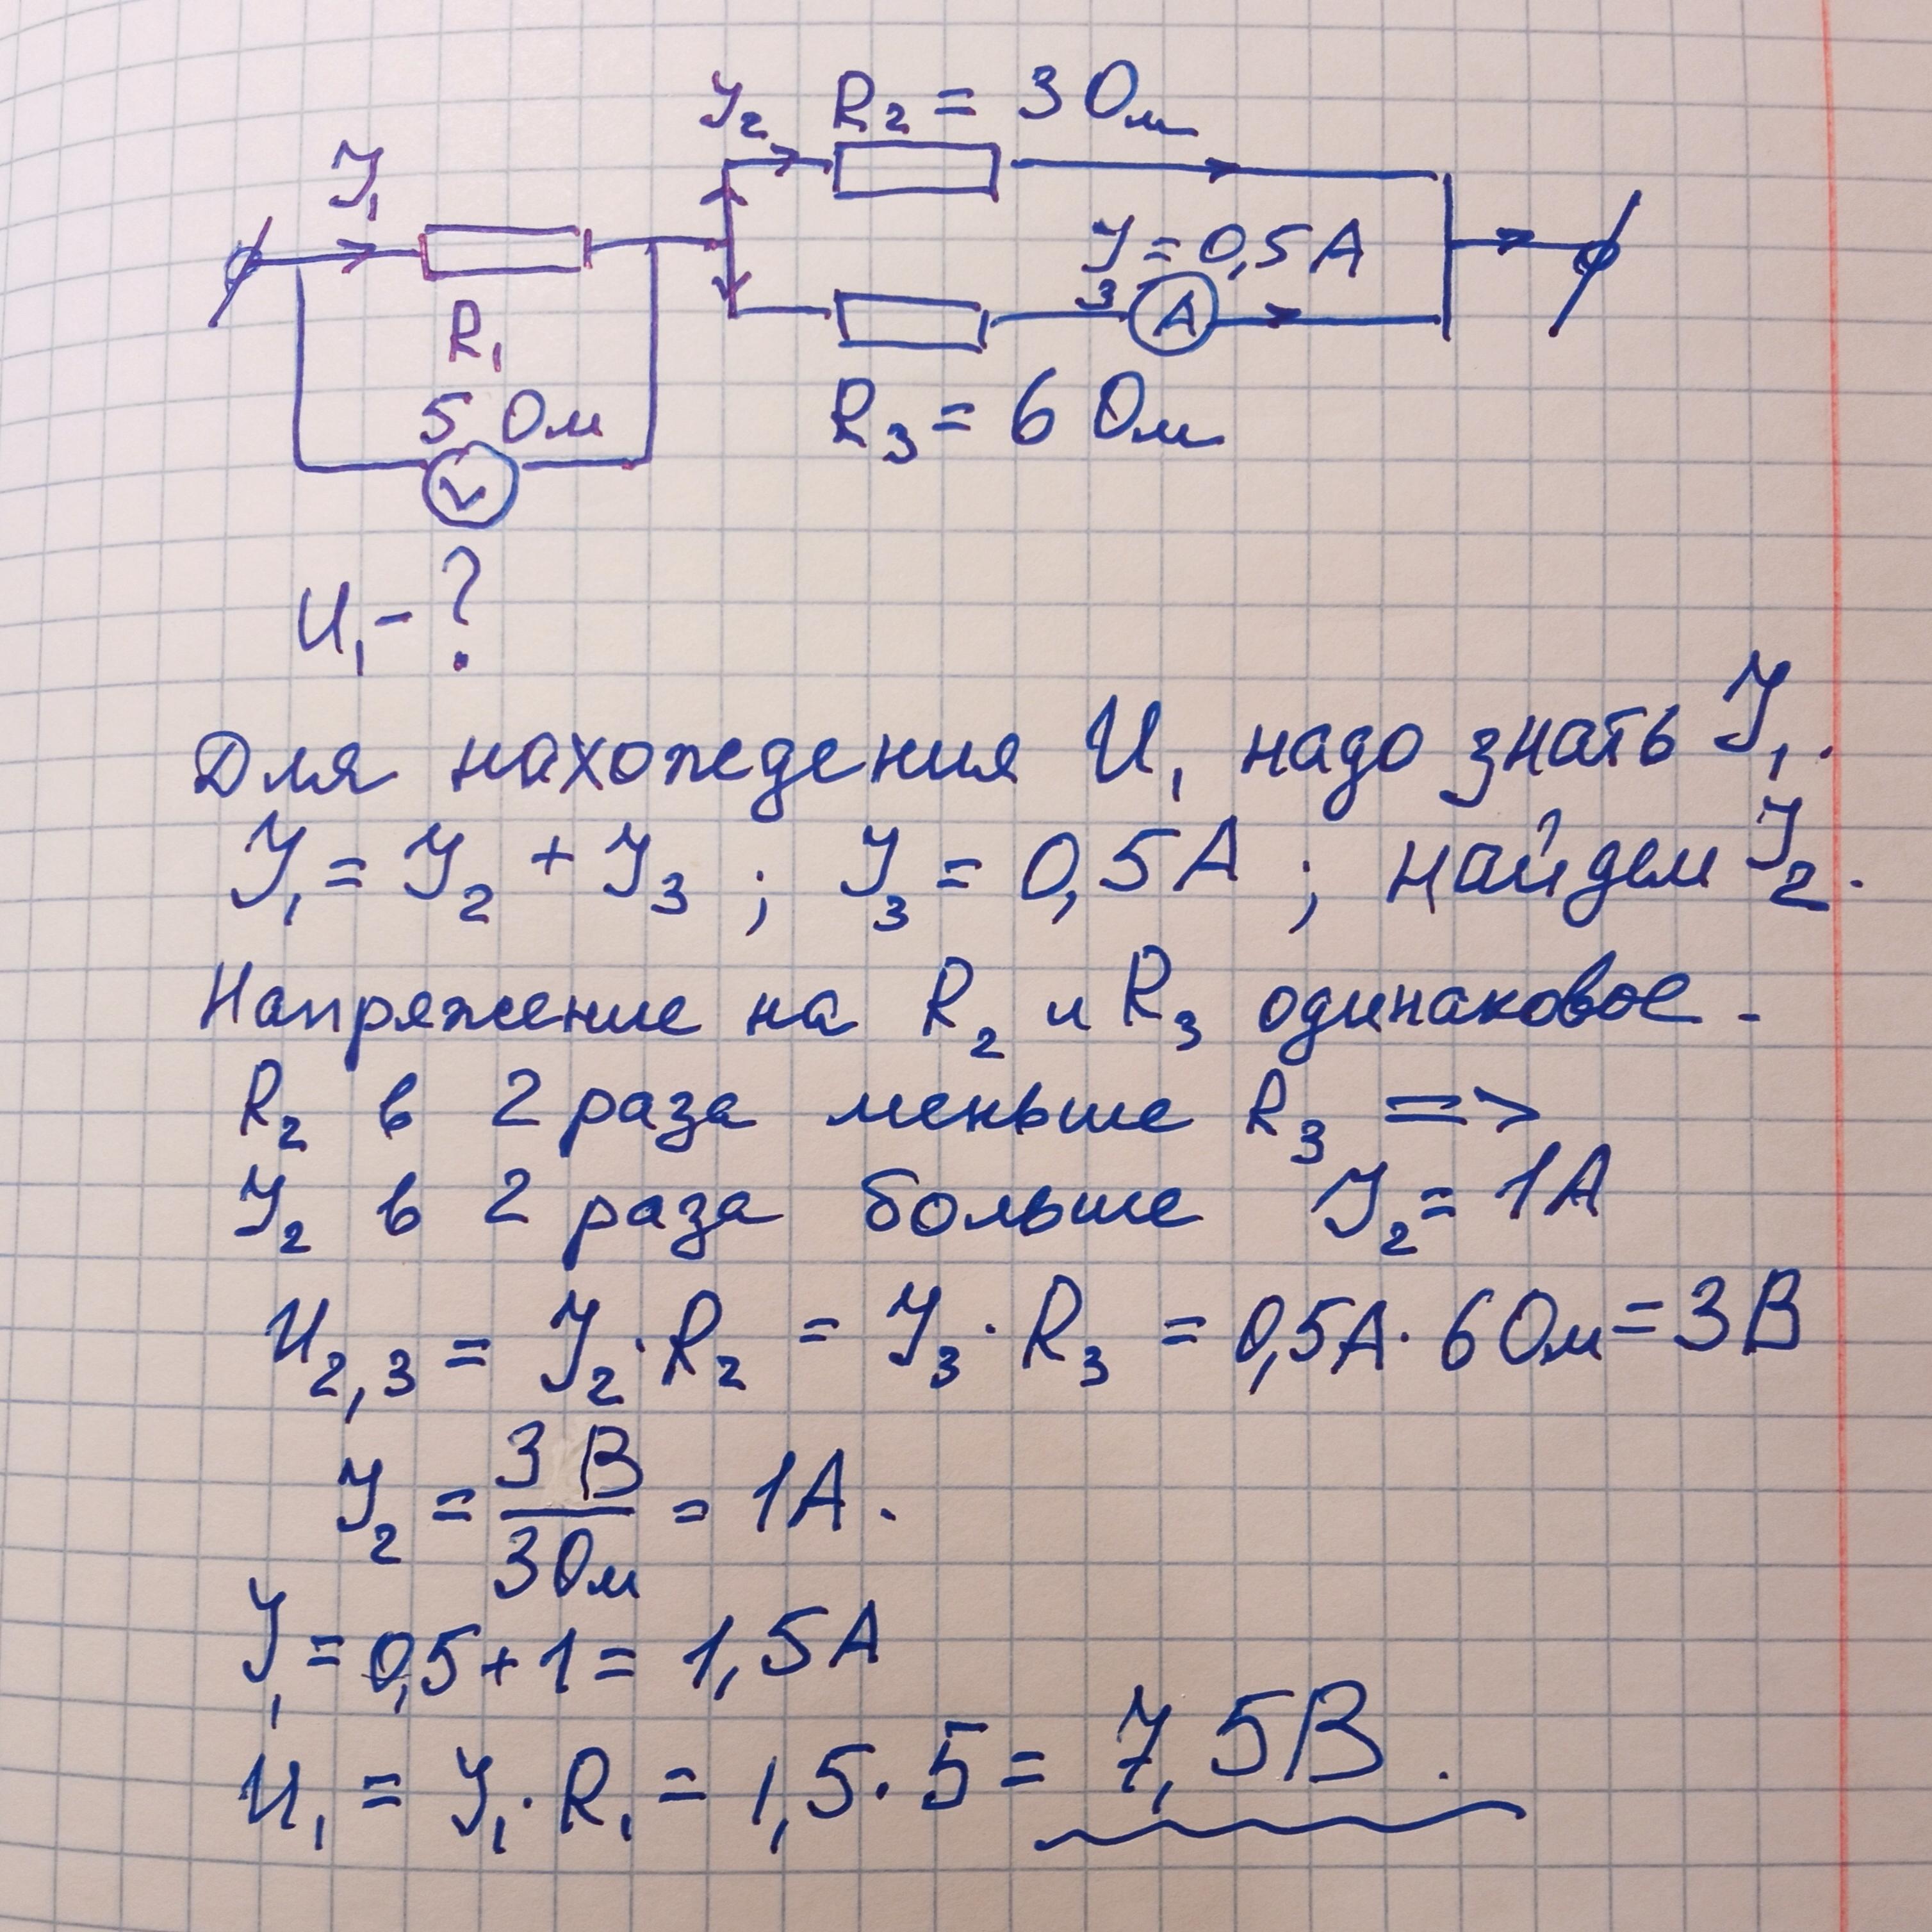 I₁
I₂ R₂ = 3 Ом
I₃ = 0,5 А
A
R₁
5 Ом
V
R₃ = 6 Ом
U₁ - ?
Для нахождения U₁ надо знать I₁.
I₁ = I₂ + I₃ ; I₃ = 0,5 А ; найдем I₂.
Напряжение на R₂ и R₃ одинаковое -
R₂ в 2 раза меньше R₃ =>
I₂ в 2 раза больше I₂ = 1А
U₂,₃ = I₂ · R₂ = I₃ · R₃ = 0,5А · 6 Ом = 3 В
I₂ = 3 В / 3 Ом = 1А.
I₁ = 0,5 + 1 = 1,5А
U₁ = I₁ · R₁ = 1,5 · 5 = 7,5В.